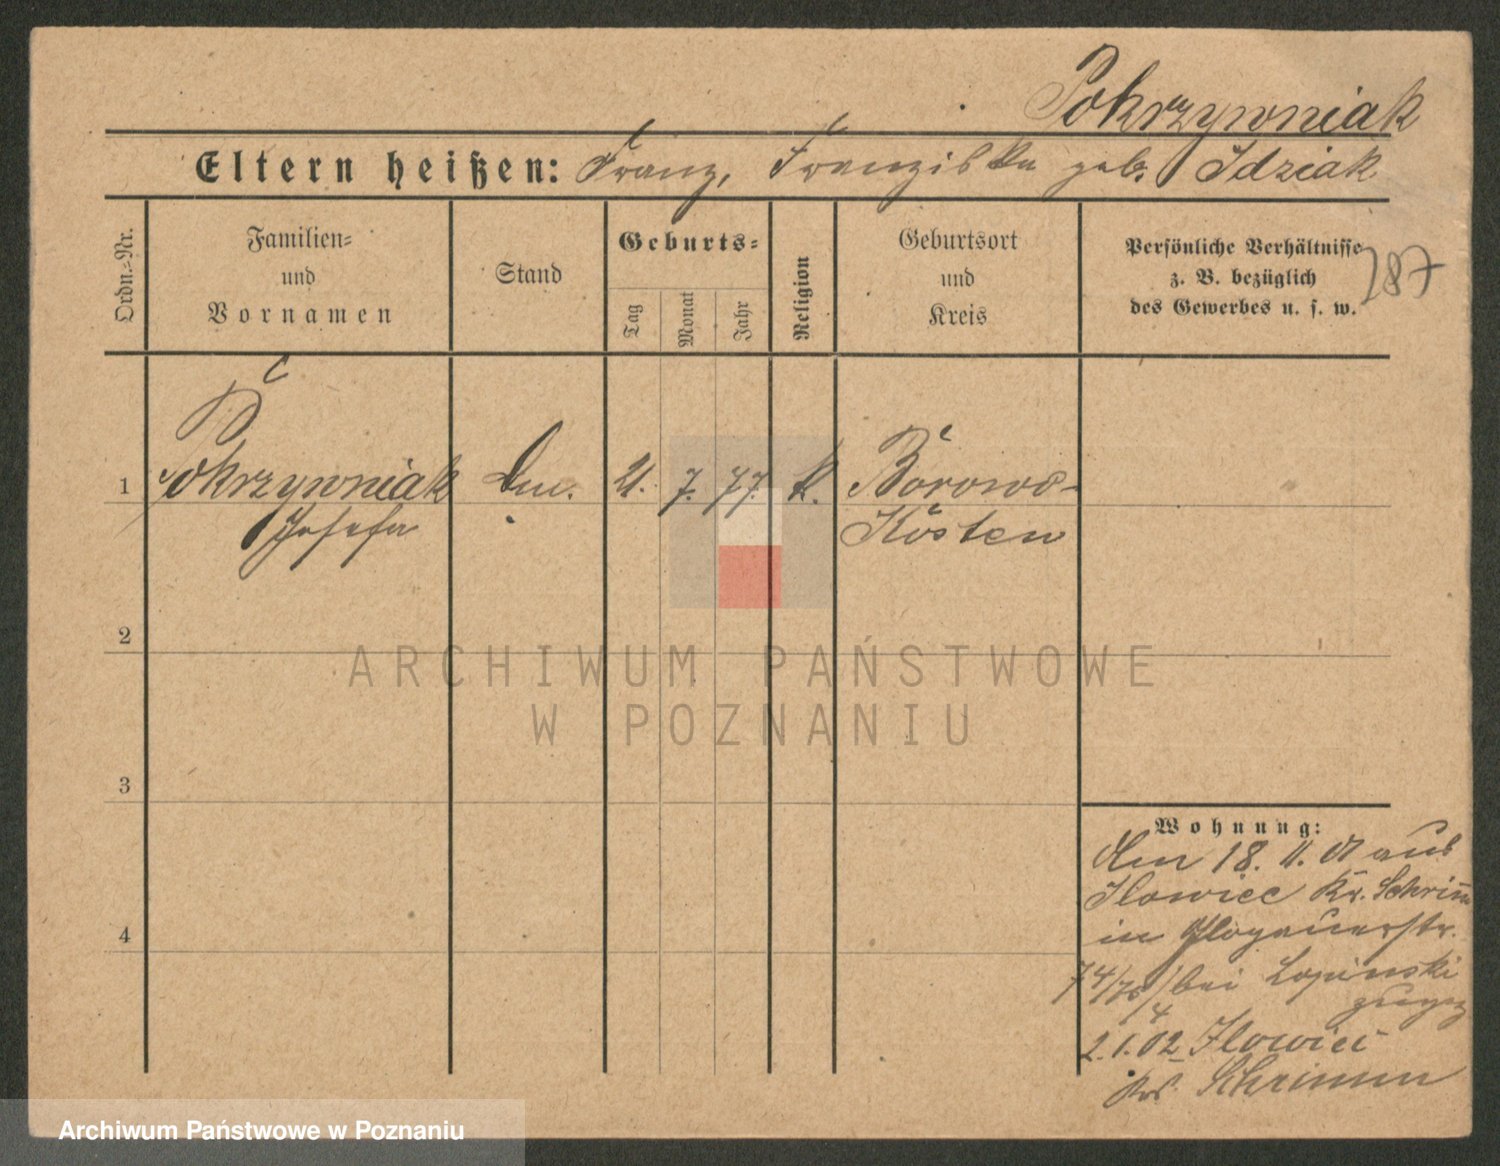 Pokrzywniak
Eltern heißen: Franz, Franziska geb. Idziak
Ordn.-Nr.
Familien-
und
Vornamen
Stand
Geburts-
Tag
Monat
Jahr
Religion
Geburtsort
und
Kreis
Persönliche Verhältnisse
z. B. bezüglich
des Gewerbes u. s. w.
787
1 Pokrzywniak 21. 7. 77. k. Borowo-
Josefa Kosten
2
3
4
Wohnung:
Am 18. 11. 01 aus
Ilowiec Kr. Schrimm
in Glogauerstr.
74/75/4 bei Lopinski
zugez
2.1.02 Ilowiec
Kr. Schrimm
ARCHIWUM PAŃSTWOWE
W POZNANIU
Archiwum Państwowe w Poznaniu